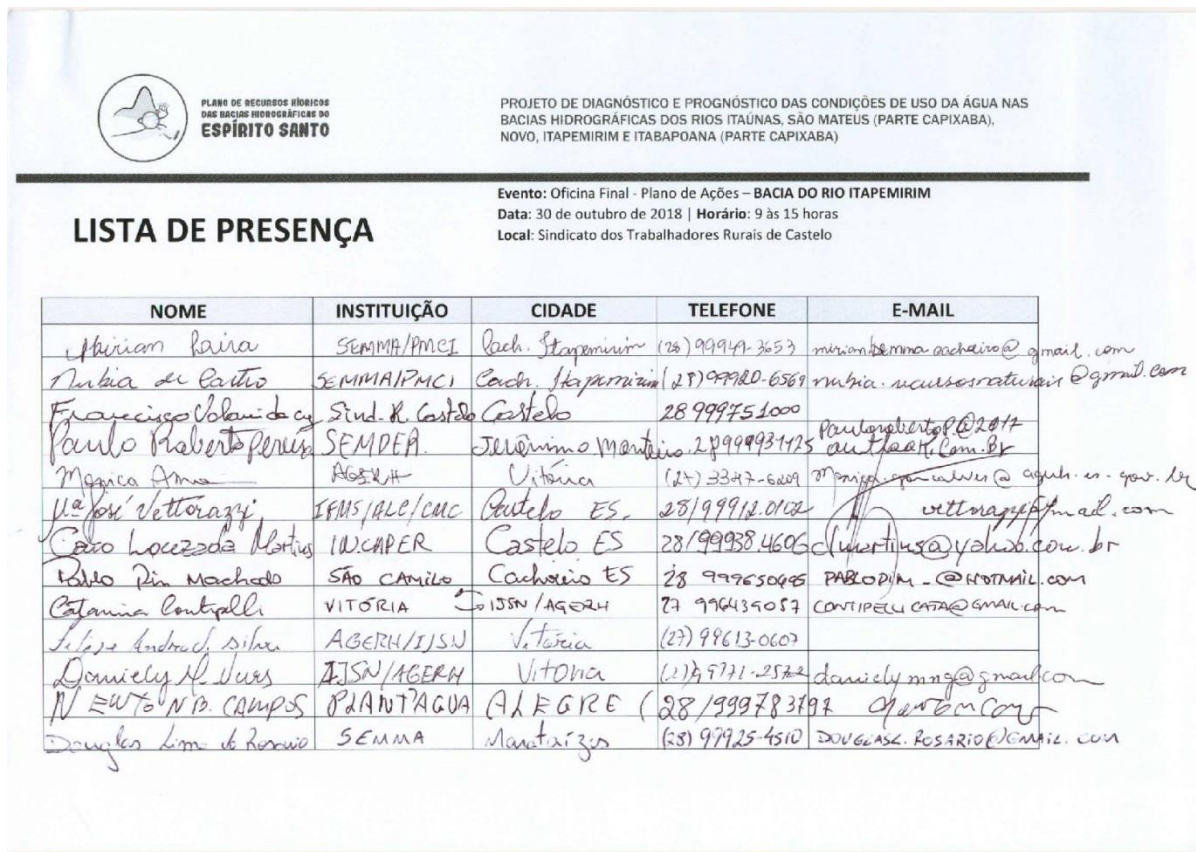 PLANO DE RECURSOS HÍDRICOS
DAS BACIAS HIDROGRÁFICAS DO
ESPÍRITO SANTO
PROJETO DE DIAGNÓSTICO E PROGNÓSTICO DAS CONDIÇÕES DE USO DA ÁGUA NAS
BACIAS HIDROGRÁFICAS DOS RIOS ITAÚNAS, SÃO MATEUS (PARTE CAPIXABA),
NOVO, ITAPEMIRIM E ITABAPOANA (PARTE CAPIXABA)
LISTA DE PRESENÇA
Evento: Oficina Final - Plano de Ações – BACIA DO RIO ITAPEMIRIM
Data: 30 de outubro de 2018 | Horário: 9 às 15 horas
Local: Sindicato dos Trabalhadores Rurais de Castelo
NOME INSTITUIÇÃO CIDADE TELEFONE E-MAIL
Mirian SEMMA/PMCI Cach. Itapemirim (28) 99949-3653
Nubia de Castro SEMMA/PMCI Cach. Itapemirim (28) 99920-6569 nubia.recursosnaturais@gmail.com
Francisco Sind. R. Castelo Castelo 28 999751000
Paulo Roberto Pereira SEMDER. Jerônimo Monteiro.
Monica AGERH Vitória (27) 3347-6209
Mª José Vettorazzi Castelo ES. 28/99912.0102
Martins INCAPER Castelo ES 28/99938.4606
Pablo Machado SÃO CAMILO Cachoeiro ES 28 999650495
Catarina Contipelli VITÓRIA IJSN/AGERH 27 996439057 CONTIPELLICATA@GMAIL.com
Silva AGERH/IJSN Vitória (27) 99613-0607
Daniely IJSN/AGERH Vitória danielymng@gmail.com
NEWTON B. CAMPOS PLANT'AGUA ALEGRE (28/999783797
Douglas Lima do Rosario SEMMA Marataízes (28) 99925-4510 DOUGLASL.ROSARIO@GMAIL.COM